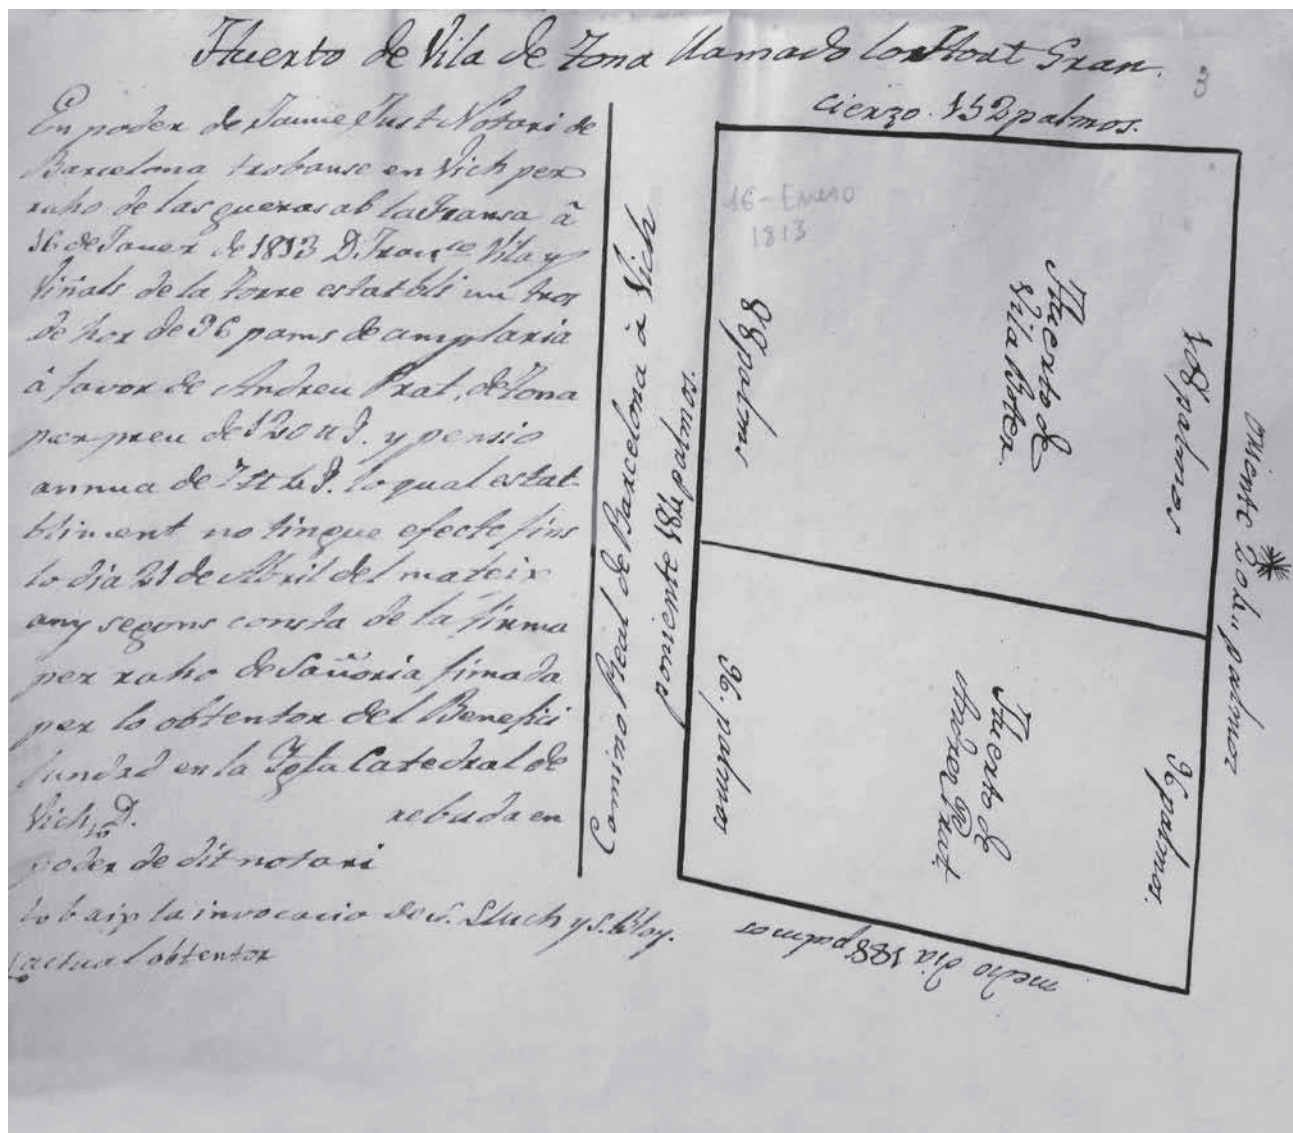 Huerto de Vila de Tona llamado lo Hort Gran.
3
En poder de Jaume Just Notari de
Barcelona trobanse en Vich per
raho de las gueras ab la Fransa â
16 de Janer de 1813 D. Fran.co Vila y
Viñals de la Torre establi un tros
de hor de 96 pams de amplaria
â favor de Andreu Prat, de Tona
per preu de 120 ₶. y pensio
annua de 7 ₶ lo qual estat-
bliment no tingue efecte fins
lo dia 21 de Abril del mateix
any segons consta de la firma
per raho de Sañoria firmada
per lo obtentor del Benefici
fundad en la Igla Catedral de
Vich, D. rebuda en
poder de dit notari
to baix la invocacio de S. Lluch y S. Bloy.
actual obtentor
Camino Real de Barcelona â Vich
poniente 184 palmos.
cierzo. 152 palmos.
16-Enero
1813
88 palmos
Huerto de
Vila
108 palmos
oriente 204 palmos
96. palmos
Huerto de
Andres Prat.
96 palmos.
medio dia 188 palmos